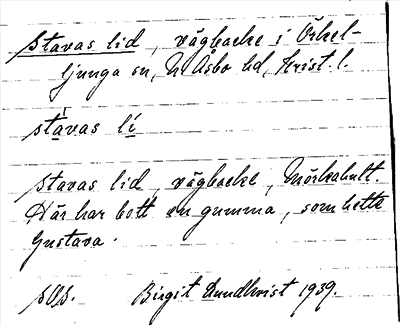 Stavas lid, vägbacke i Örkel-
ljunga sn, N Åsbo hd, Krist. l.
stavas lí
Stavas lid, vägbacke, Mörkahult.
Här har bott en gumma, som hette
Gustava.
Birgit Lundkvist 1939.